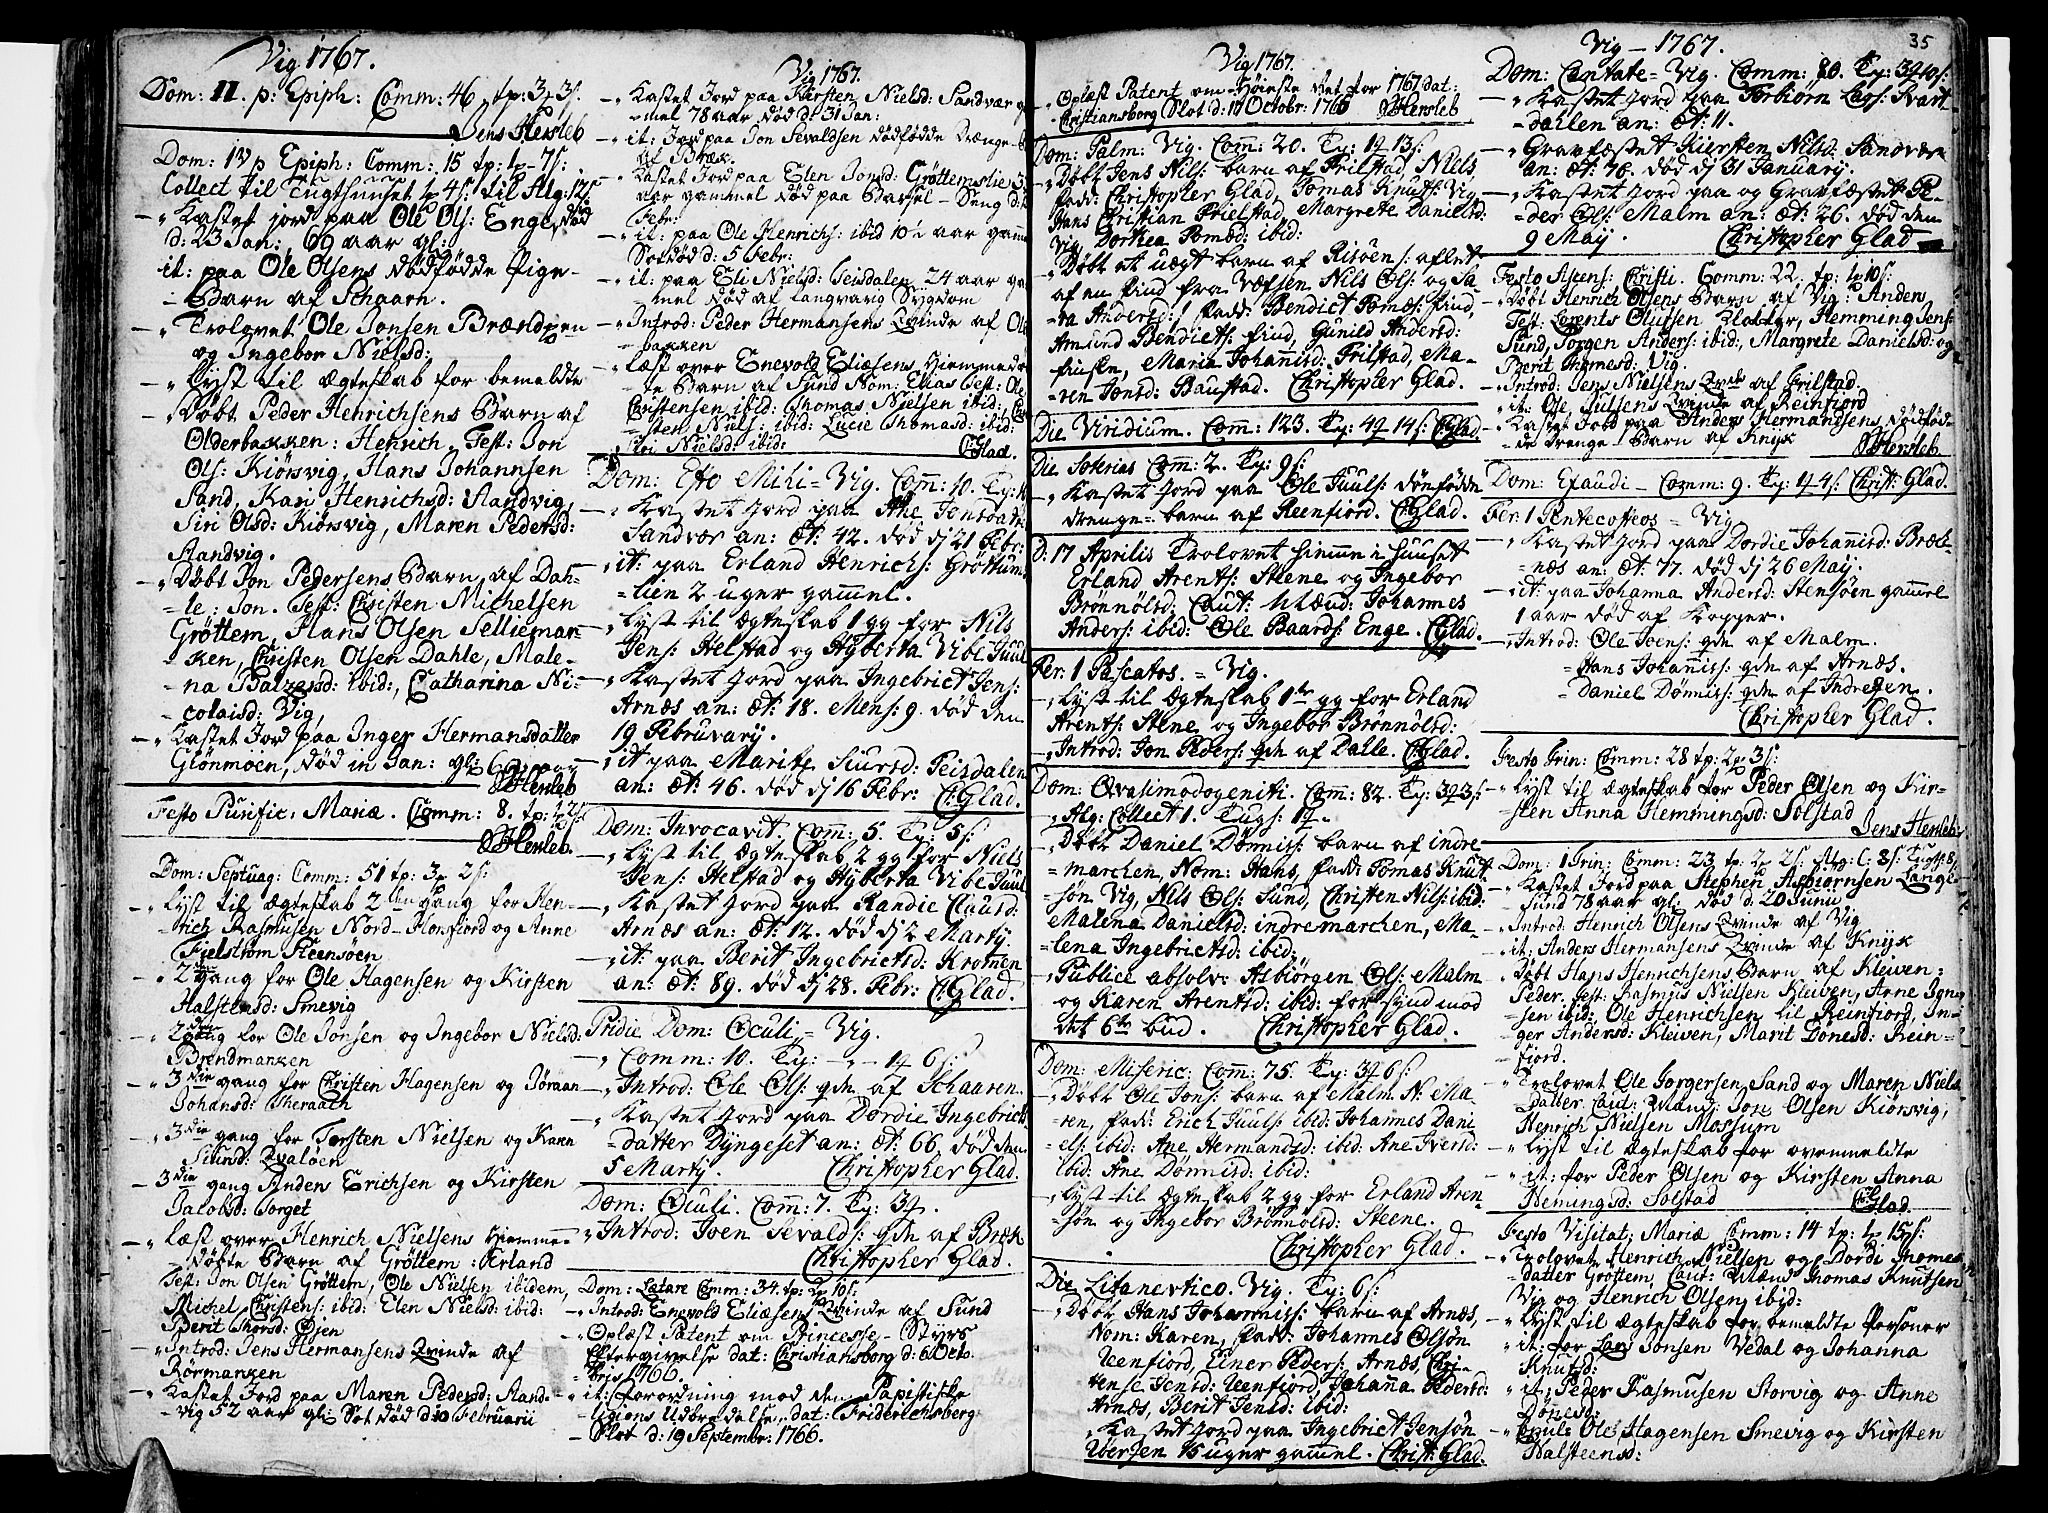 Vig 1767.
Dom: II. p: Epiph: Comm: 46 tp: 3p 3s.
Jens Hersleb
Dom: IV p Epiph: Comm: 15 tp: 1p - 7s:
Collect til Tugthuuset 1p 4s: til Alg: 12s
" Kastet jord paa Ole Ols: Enge, død
d: 23 Jan: 69 aar gl:
it: paa Ole Olsens dødfødde Pige-
Barn af Schaarn.
" Trolovet Ole Jonsen Brænd
og Ingebor Nielsd:
" lyst til ægteskab for bemeldte
" Døbt Peder Henrichsens Barn af
Olderbakken: Henrich, Test: Jon
Ols: Kiørsvig, Hans Johannsen
Sand, Kari Henrichsd: Standvig,
Siri Olsd: Kiørsvig, Maren Pedersd:
Standvig.
" Døbt Jon Pedersens Barn af Dah-
le: Jon. Test: Christen Michelsen
Grøttem, Hans Olsen Selliemar-
ken, Christen Olsen Dahle, Male-
na Balzersd: ibid:, Catharina Ni-
colaisd: Vig,
" Kastet Jord paa Inger Hermansdatter
Glonmoen, død in Jan: gl: 6 aar
JHersleb
Festo Purific: Mariæ. Comm: 8. tp: 1p 2s:
JHersleb.
Dom: Septuag: Comm: 51 tp: 3p 2s:
" lyst til ægteskab 2den gang for Hen-
rich Rasmusen Nord-Horsfiord og Anne
Fielstrøm Steensøen
" 2 gang for Ole Hagensen og Kirsten
Halstensd: Smevig
" 2 gang for Ole Jonsen og Ingebor Nielsd:
Brendmanken
" 3die gang for Christen Hagensen og Jøraan
Johansd: Theraath
" 3die gang for Torsten Nielsen og Karn
Siursd: Qvaløen
" 3die gang Anden Erichsen og Kirsten
Jacobsd: Torget
" Læst over Henrich Nielsens Hiemme-
døbte Barn af Grøttem: Erland
Test: Jon Olsen Grøttem, Ole Nielsen ibidem,
Michel Christens: ibid: Elen Nielsd: ibid:
Berit Thorsd: Øien
" Introd: Jens Hermansens Qvinde af
Rørmarken
" Kastet Jord paa Maren Pedersd: Stand-
vig 52 aar gl: Sot død d: 10 Februarii
Vig 1767.
" Kastet Jord paa Kersten Nielsd: Sandvær g
mel 78 aar død d: 31 Jan:
" it: Jord paa Jon Sevaldsen dødfødde Drænge-
af Bræk.
" Kastet Jord paa Elen Jonsd: Grøttemslie 3
aar gammel død paa Barsel-Seng d:
Febr:
" it: paa Ole Henrichs: ibid 10½ aar gam
Sotdød d: 5 Febr:
" it: paa Eli Nielsd: Teisdalen 24 aar ga
mel død af langvarig Sygdom
" Introd: Peder Hermansens Qvinde af Ol
bakken
" Læst over Enevold Eliæsens Hiemmedø
te Barn af Sund Nom: Elias Test: Ole
Christensen ibid: Thomas Nielsen ibid: Ch
sten Niels: ibid: Lucie Thomasd: ibid:
Siri Nielsd: ibid: CGlad.
Dom: Esto Mihi = Vig. Com̅: 10. Ty:
" Kastet Jord paa Ane Jonsdatr
Sandvær an: æt: 42. død dj 21 Febr:
" it: paa Erland Henrichs: Grøttums
lien 2 uger gam̅el.
" Lyst til Ægteskab 1 gg for Nils
Jens: Helstad og Hyberta Vibe Juul
" Kastet Jord paa Ingebrict Jens:
Arnæs an: æt: 18. Mens: 9. død den
19 Februvarij.
" it paa Marite Siursd: Teisdalen
an: æt: 46. død dj 16 Febr: C:Glad.
Dom: Invocavit. Com̅: 5. Ty: 5s:
" Lyst til Ægteskab 2 gg for Niels
Jens: Helstad og Hyberta Vibe Juul
" Kastet Jord paa Randie Clausd:
Arnæs an: æt: 12. død dj 2 Martij.
" it: paa Berit Ingebrictsd: Kromen
an: æt: 89. død dj 28. Febr: C:Glad.
Pridie Dom: Oculi = Vig.
" Comm: 10. Ty: - - 1p 6s:
" Introd: Ole Ols: qde af Schaaren.
" Kastet Jord paa Dordie Ingebrict
datter Dyngeset an: æt: 66. død den
5 Martij. Christopher Glad.
Dom: Oculi. Com̅: 7. Ty: 3p.
" Introd: Joen Sevalds: qde af Bræk
Christopher Glad.
Dom: Lætare Comm: 34. tp: 2p 10s:
" Introd: Enevold Eliæsens Qvinde af Sund
" Oplæst Patent om Princesse-Styrs
Eftergivelse dat: Christiansborg d: 6 Octo
bris 1766.
" it: forordning mod den Papistiske
ligions Udbredalse, dat: Friderichsberg
Slot d: 19 Septembr: 1766.
Vig 1767.
" Oplæst Patent om Høieste Ret for 1767 dat:
Christiansborg Slot d: 10 Octobr: 1766 JHersleb
Dom: Palm: Vig. Com̅: 20. Ty: 1p 13s:
" Døbt Jens Nils: barn af Frilstad, Niels,
fadd: Christopher Glad, Tomas Knuts: Vig,
Hans Christian Frielstad, Margrete Danielsd:
Vig, Dorthea Tomæd: ibid:
" Døbt et uægt barn af Risøen: aflet
af en find fra Vefsen Nils Ols: og Sa-
ra Andersd: fadd: Bendict Tomes: find,
Amund Bendicts: find, Gunild Andersd:
finsken, Maria Johan̅isd: Frilstad, Ma-
ren Jonsd: Baustad. Christopher Glad.
Die Viridium. Com̅: 123. Ty: 4p 14s: CGlad.
Die Soterias Com̅: 2. Ty: 9s:
" Kastet Jord paa Ole Juuls: dønfødde
drenge-barn af Reenfiord. CGlad.
D: 17 Aprilis Trolovet Hiem̅e i Huuset
Erland Arents: Steene og Ingebor
Brønnølsd: Caut: Mænd: Johannes
Anders: ibid: Ole Baards: Enge. CGlad.
Fer: 1 Pascatos. = Vig.
" Lyst til Ægteskab 1te gg for Erland
Arents: Stene og Ingebor Brønnølsd:
" Introd: Jon Peders: qde af Dahle. CGlad.
Dom: Qvasimodogeniti. Com̅: 82. Ty: 3p 3s:
" Alg: Collect 1. Tugs: 1p.
" Døbt Daniel Dønnis: barn af indre
marchen, Nom: Hans, fadd: Tomas Knut-
søn Vig, Nils Ols: Sund, Christen Nils: ibid:
Malena Danielsd: indremarchen, Ma-
lena Ingebrictsd: ibid:
" Publice absolv: Asbiørgen Ols: Malm
og Karen Arentsd: ibid: for synd mod
det 6te bud. Christopher Glad.
Dom: Miseric: Com̅: 75. Ty: 3p 6s:
" Døbt Ole Jons: barn af Malm N: Ma-
ren, fadd: Erich Juuls: ibid: Johannes Dani-
els: ibid: Ane Hermansd: ibid: Ane Iversd:
ibid: Ane Dønnisd: ibid:
" Lyst til Ægteskab 2 gg for Erland Aren-
søn og Ingebor Brønnølsd: Steene.
Christopher Glad.
Die Litanevtico. Vig. Ty: 6s:
" Døbt Hans Johannis: barn af Arnæs,
Nom: Karen, fadd: Johannes Olsøn
Reenfiord, Einer Peders: Arnæs, Chri-
tense Jensd: Reenfiord, Johan̅a Pedersd:
Arnæs, Berit Jensd: ibid:
" Kastet Jord paa Ingebrict Jensøn
16 uger gam̅el. Christ: Glad.
35
Vig - 1767.
Dom: Cantate = Vig. Comm: 80. Ty: 3p 10s:
" Kastet Jord paa Torbiørn Lars: Svart
dahlen an: æt: 11.
" Gravfæstet Kiersten Nilsd: Sandvær
an: æt: 78. død dj 31 Januarij.
" Kastet Jord paa og Gravfæstet Pe-
der Ols: Malm an: æt: 26. død den
9 Maij. Christopher Glad
Festo Ascens: Christi. Comm: 22. tp: 1p 10s:
" Døbt Henrich Olsens Barn af Vig: Anders
Test: Lorents Olufsen Klokker, Hemming Jens:
Sund, Jørgen Anders: ibid:, Margrete Danielsd: og
Berit Thomesd: Vig.
" Introd: Jens Nielsens Qvinde af Frilstad.
" it: Ole Julsens Qvinde af Reinfiord
" Kastet Jord paa Anders Hermansens dødfød-
de Drenge-Barn af Knyk JHersleb
Dom: Exaudi - Comm: 9. Ty: 1p 4s: Christ: Glad.
Fer: 1 Pentecostes = Vig
" Kastet Jord paa Dordie Johan̅isd: Bræk-
næs an: æt: 77. død dj 26 Maij.
" it: paa Johanna Andersd: Stensøen gam̅el
1 aar død af Kopper.
" Introd: Ole Joens: qde af Malm.
Hans Johan̅is: qde af Arnæs.
Daniel Dønnis: qde af Indre
Christopher Glad.
Festo Trin: Comm: 28 tp: 2p 3s:
" Lyst til ægteskab for Peder Olsen og Kir-
sten Anna Hemmingsd: Solstad
Jens Hersleb
Dom: 1 Trin: Comm: 23 tp: 2p 2s: Alg: C: 8s: Tugth: 8
" Kastet Jord paa Stephen Asbiørnsen Lange-
sund 78 aar gl: død d: 20 Junii
" Introd: Henrich Olsens Qvinde af Vig
" it: Anders Hermansens Qvinde af Knyk
" Døbt Hans Henrichsens Barn af Kleiven:
Peder. Test: Rasmus Nielsen Kleiven, Arne
sen ibid: Ole Henrichsen til Reinfiord, In-
ger Andersd: Kleiven, Marit Dønesd: Rein-
fiord.
" Trolovet Ole Jørgersen Sand og Maren Niels
datter Caut: Mænd: Jon Olsen Kiørsvig,
Henrich Nielsen Mossum
" Lyst til ægteskab for ovenmeldte
" it: for Peder Olsen og Kirsten Anna
Hemingsd: Solstad CGlad
Festo Visitat: Mariæ Comm: 14 tp: 1p 15s:
" Trolovet Henrich Nielsen og Dordi Thomes
datter Grøttem, Caut: Mænd Thomas Knutsen
Vig og Henrich Olsen ibid:
" Lyst til ægteskab for bemeldte Personer
" it: for Lars Jonsen Vedal og Johanna
Knutsd:
" it: Peder Rasmusen Storvig og Anne
Dønesd:
" Copul: Ole Hagensen Smevig og Kirsten
Halsteensd: